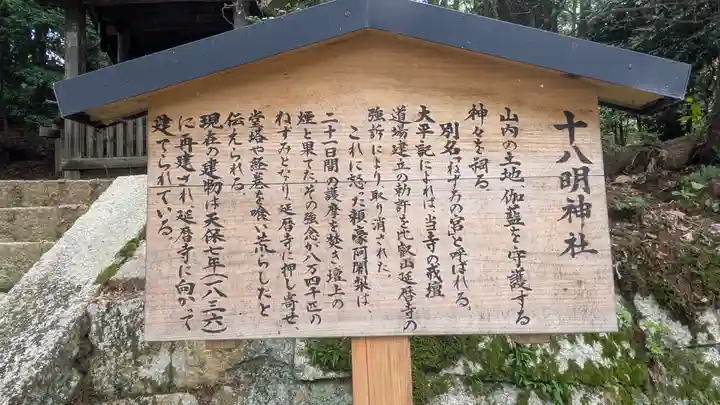 十八明神社
山内の土地、伽藍を守護する
神々を祀る。
別名「ねずみの宮」と呼ばれる。
太平記によれば、当寺の戒壇
道場建立の勅許を比叡山延暦寺の
強訴により取り消された。
これに怒った頼豪阿闍梨は、
二十一日間の護摩を焚き、壇上の
煙と果てた。その強念が八万四千匹の
ねずみとなり、延暦寺に押し寄せ、
堂塔や経巻を喰い荒らしたと
伝えられる。
現在の建物は天保七年(一八三六)
に再建され延暦寺に向かって
建てられている。